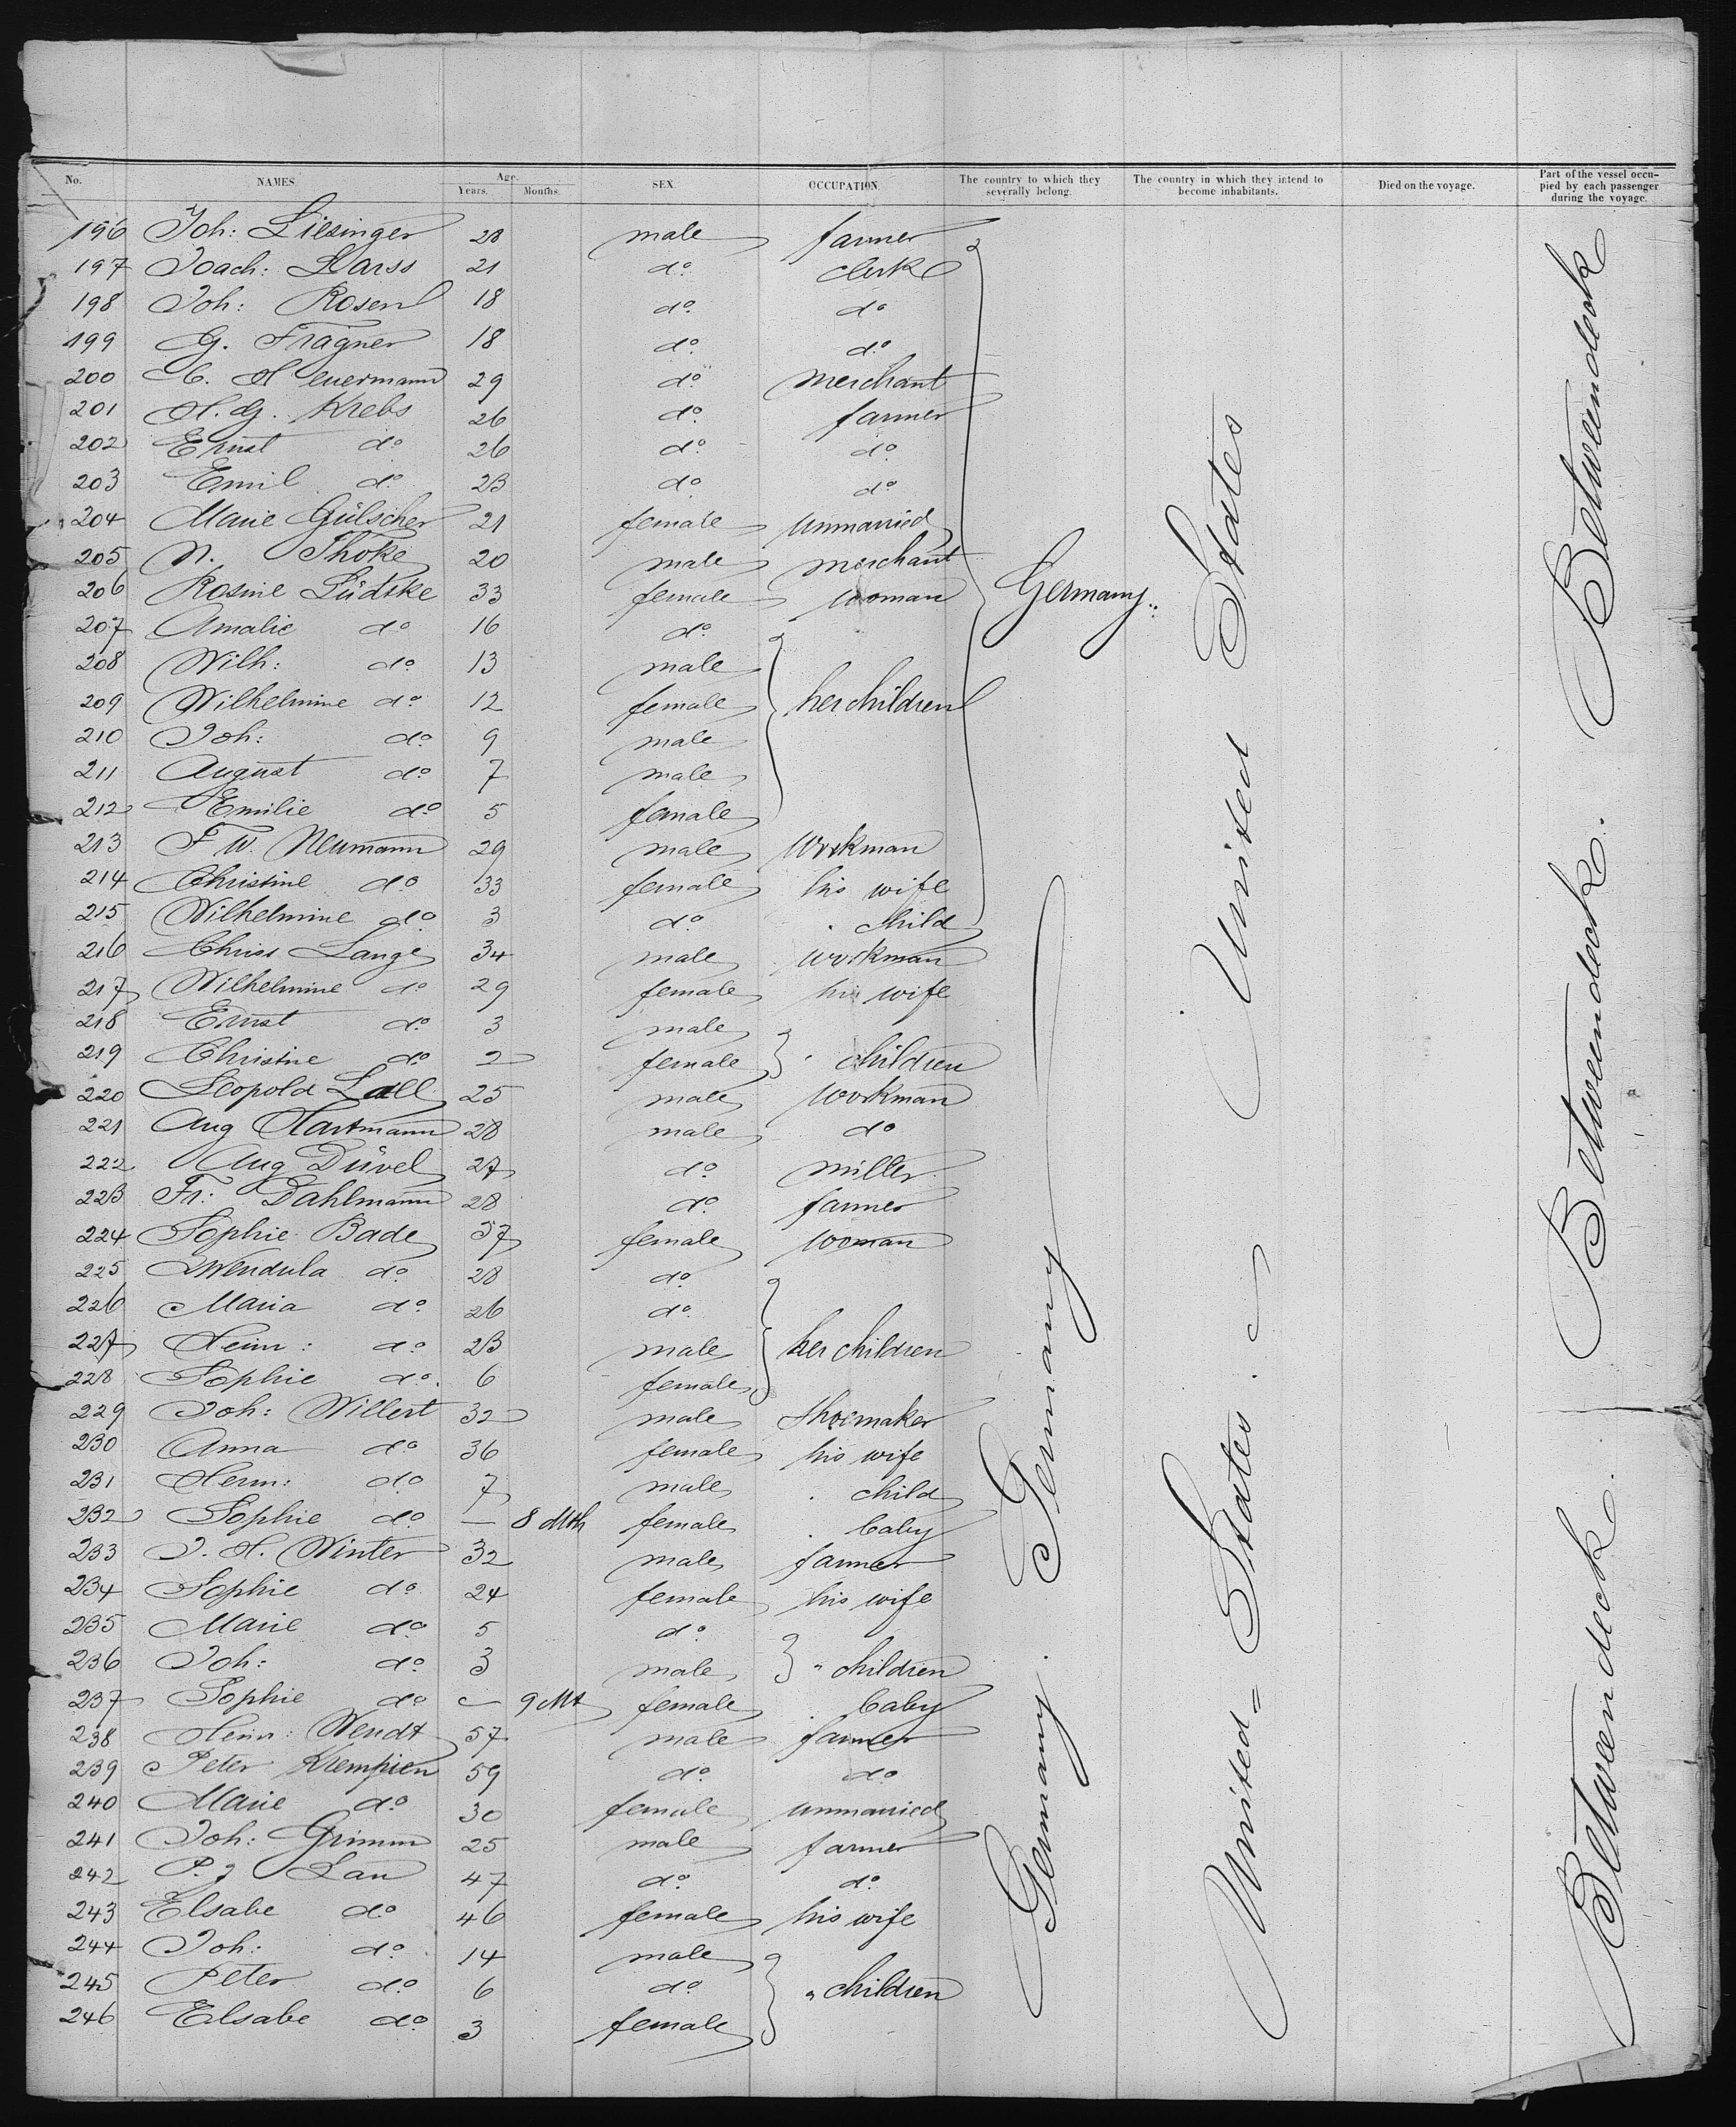 No. NAMES. Age. Years. Months. SEX. OCCUPATION. The country to which they severally belong. The country in which they intend to become inhabitants. Died on the voyage. Part of the vessel occupied by each passenger during the voyage.
196 Joh: Liesinger 28 male farmer
197 Joach: Karss 21 do clerk
198 Joh: Rosen 18 do do
199 G. Fragner 18 do do
200 C. Heuermann 29 do merchant
201 H. G. Krebs 26 do farmer
202 Ernst do 26 do do
203 Emil do 23 do do
204 Marie Gülscher 21 female unmarried
205 N. Thoke 20 male merchant
206 Rosine Lüdtke 33 female woman Germany
207 Amalie do 16 do
208 Wilh: do 13 male
209 Wilhelmine do 12 female her children
210 Joh: do 9 male
211 August do 7 male
212 Emilie do 5 female
213 F W. Neumann 29 male workman
214 Christine do 33 female his wife
215 Wilhelmine do 3 do " child
216 Chriss Lange 34 male workman
217 Wilhelmine do 29 female his wife
218 Ernst do 3 male
219 Christine do 2 female " children
220 Leopold Lall 25 male workman
221 Aug Hartmann 28 male do
222 Aug Düvel 27 do miller
223 Fr: Dahlmann 28 do farmer
224 Sophie Bade 57 female woman
225 Wendula do 28 do
226 Maria do 26 do
227 Heinr: do 23 male her children
228 Sophie do 6 female
229 Joh: Willert 32 male shoemaker
230 Anna do 36 female his wife
231 Herm: do 7 male " child
232 Sophie do — 8 Mth female " baby
233 J. H. Winter 32 male farmer
234 Sophie do 24 female his wife
235 Marie do 5 do
236 Joh: do 3 male " children
237 Sophie do — 9 Mt female " baby
238 Heinr: Wendt 57 male farmer
239 Peter Krempien 59 do do
240 Marie do 30 female unmarried
241 Joh: Grimm 25 male farmer
242 P. J Lau 47 do do
243 Elsabe do 46 female his wife
244 Joh: do 14 male
245 Peter do 6 do " children
246 Elsabe do 3 female
Germany. Germany
United = States. United States
Betweendeck. Betweendeck. Betweendeck